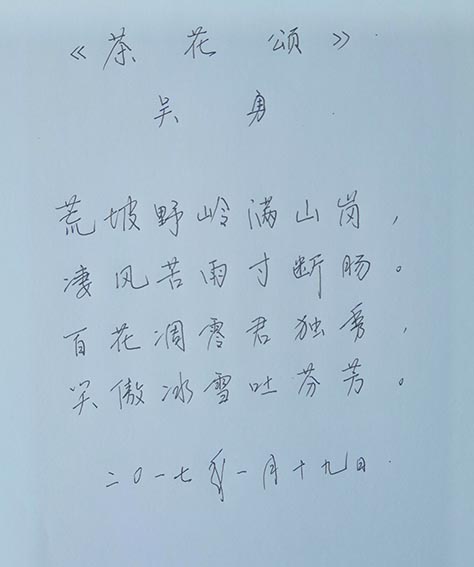 《茶花颂》
吴勇
荒坡野岭满山岗，
凄风苦雨寸断肠。
百花凋零君独秀，
笑傲冰雪吐芬芳。
二0一七年一月十九日.